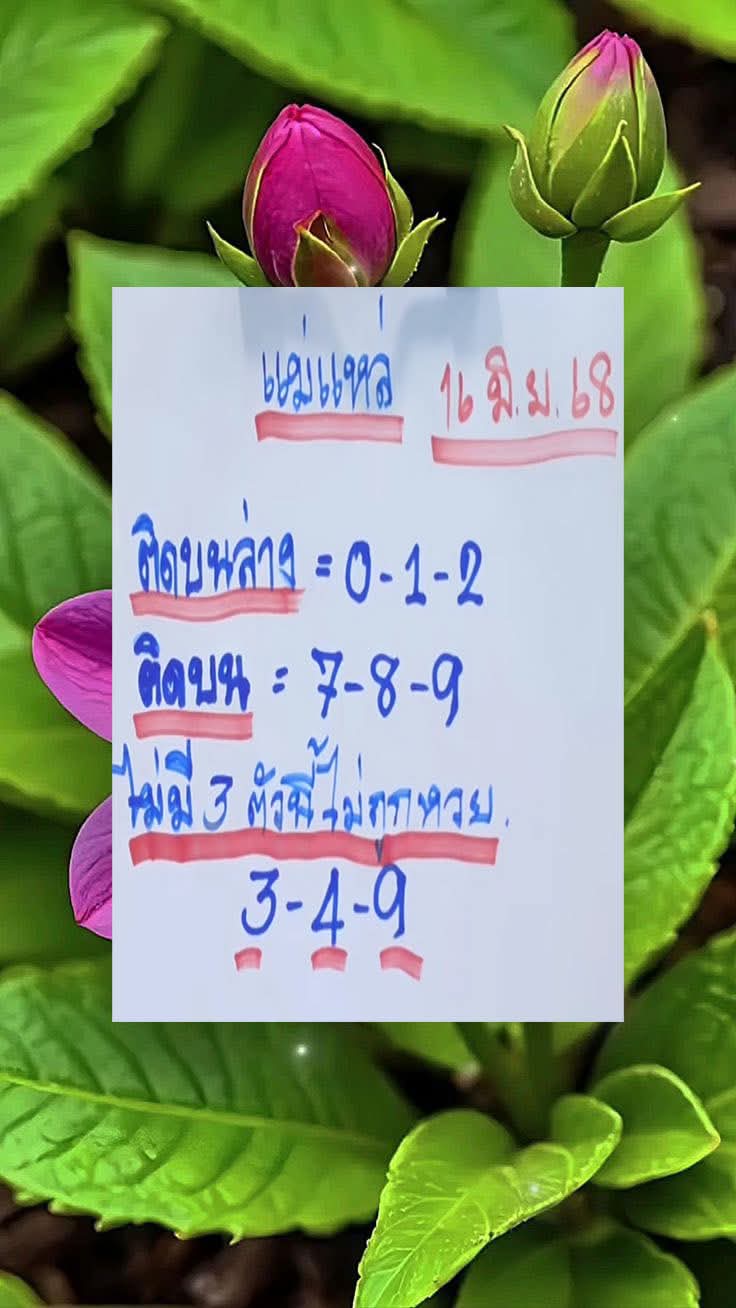 แม่แหล่ 16 มิ.ย. 68
ติดบนล่าง = 0-1-2
ติดบน = 7-8-9
ไม่มี 3 ตัวนี้ไม่ถูกหวย.
3-4-9